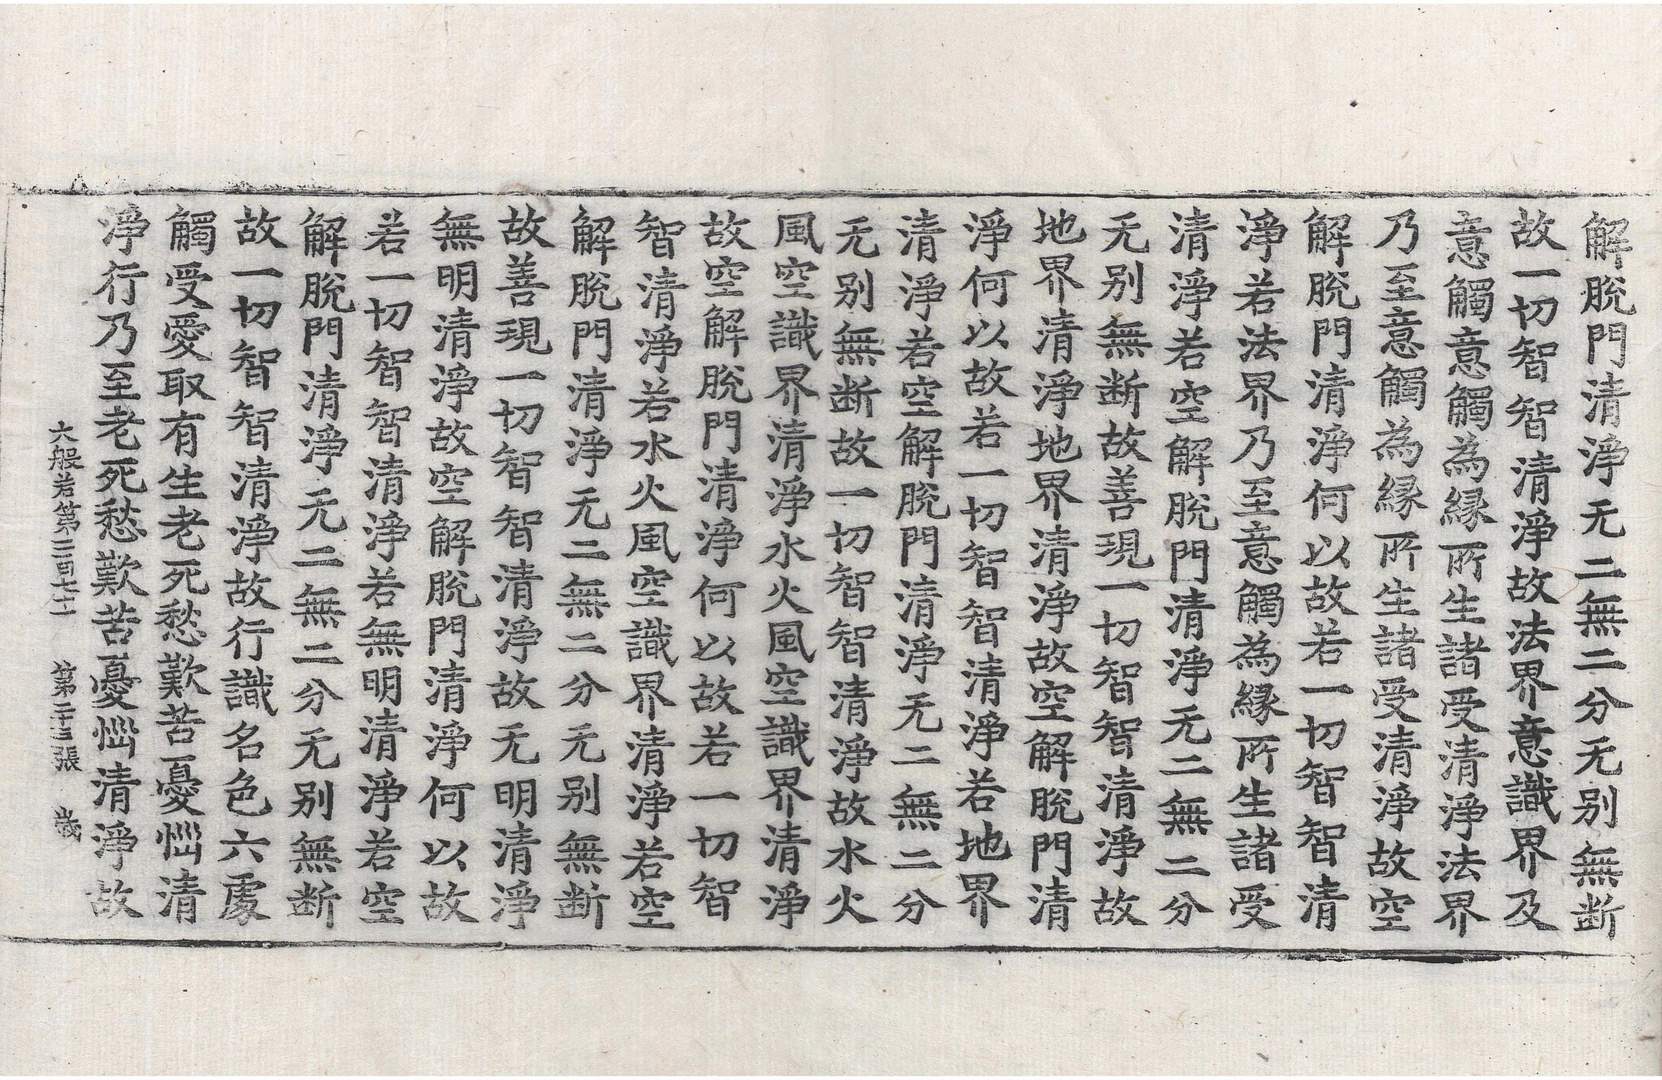 解脫門清淨无二無二分无別無断
故一切智智清淨故法界意識界及
意觸意觸為縁所生諸受清淨法界
乃至意觸為縁所生諸受清淨故空
解脫門清淨何以故若一切智智清
淨若法界乃至意觸為縁所生諸受
清淨若空解脫門清淨无二無二分
无別無断故善現一切智智清淨故
地界清淨地界清淨故空解脫門清
淨何以故若一切智智清淨若地界
清淨若空解脫門清淨无二無二分
无別無断故一切智智清淨故水火
風空識界清淨水火風空識界清淨
故空解脫門清淨何以故若一切智
智清淨若水火風空識界清淨若空
解脫門清淨无二無二分无別無断
故善現一切智智清淨故无明清淨
無明清淨故空解脫門清淨何以故
若一切智智清淨若無明清淨若空
解脫門清淨无二無二分无別無断
故一切智智清淨故行識名色六處
觸受愛取有生老死愁歎苦憂惱清
淨行乃至老死愁歎苦憂惱清淨故
大般若第二百七十一 第二十三張 歲